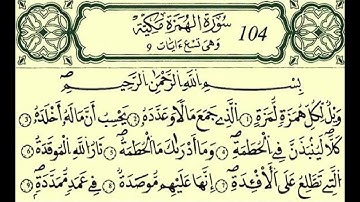 سُورَةُ الْهُمَزَةِ مَكِّيَّةٌ 104
وَهِيَ تِسْعُ ءَايَاتٍ 9
بِسْمِ اللَّهِ الرَّحْمَٰنِ الرَّحِيمِ
وَيْلٌ لِّكُلِّ هُمَزَةٍ لُّمَزَةٍ ١ الَّذِي جَمَعَ مَالًا وَعَدَّدَهُ ٢ يَحْسِبُ أَنَّ مَالَهُ أَخْلَدَهُ ٣
كَلَّا لَيُنۢبَذَنَّ فِي الْحُطَمَةِ ٤ وَمَا أَدْرَىٰكَ مَا الْحُطَمَةُ ٥ نَارُ اللَّهِ الْمُوقَدَةُ ٦
الَّتِي تَطَّلِعُ عَلَى الْأَفْئِدَةِ ٧ إِنَّهَا عَلَيْهِم مُّوصَدَةٌ ٨ فِي عَمَدٍ مُّمَدَّدَةٍ ٩